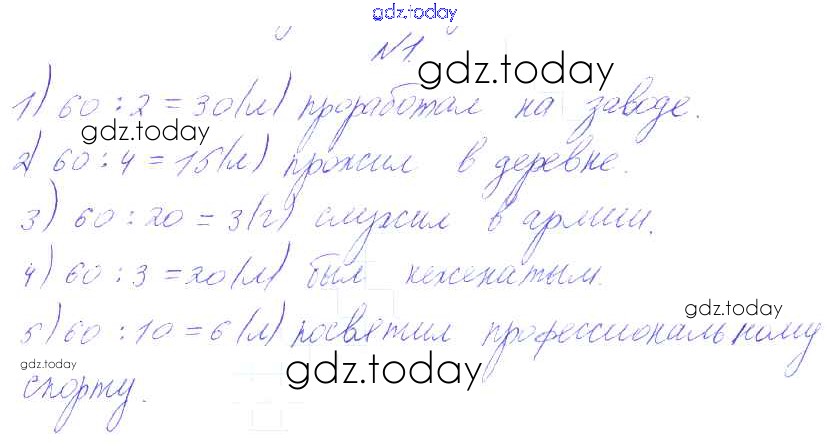 gdz.today
N1.
gdz.today
1) 60 : 2 = 30 (л) проработал на заводе.
gdz.today
2) 60 : 4 = 15 (л) прожил в деревне.
3) 60 : 20 = 3 (г) служил в армии.
4) 60 : 3 = 20 (л) был неженатым.
gdz.today
5) 60 : 10 = 6 (л) посвятил профессиональному
gdz.today
gdz.today
спорту.